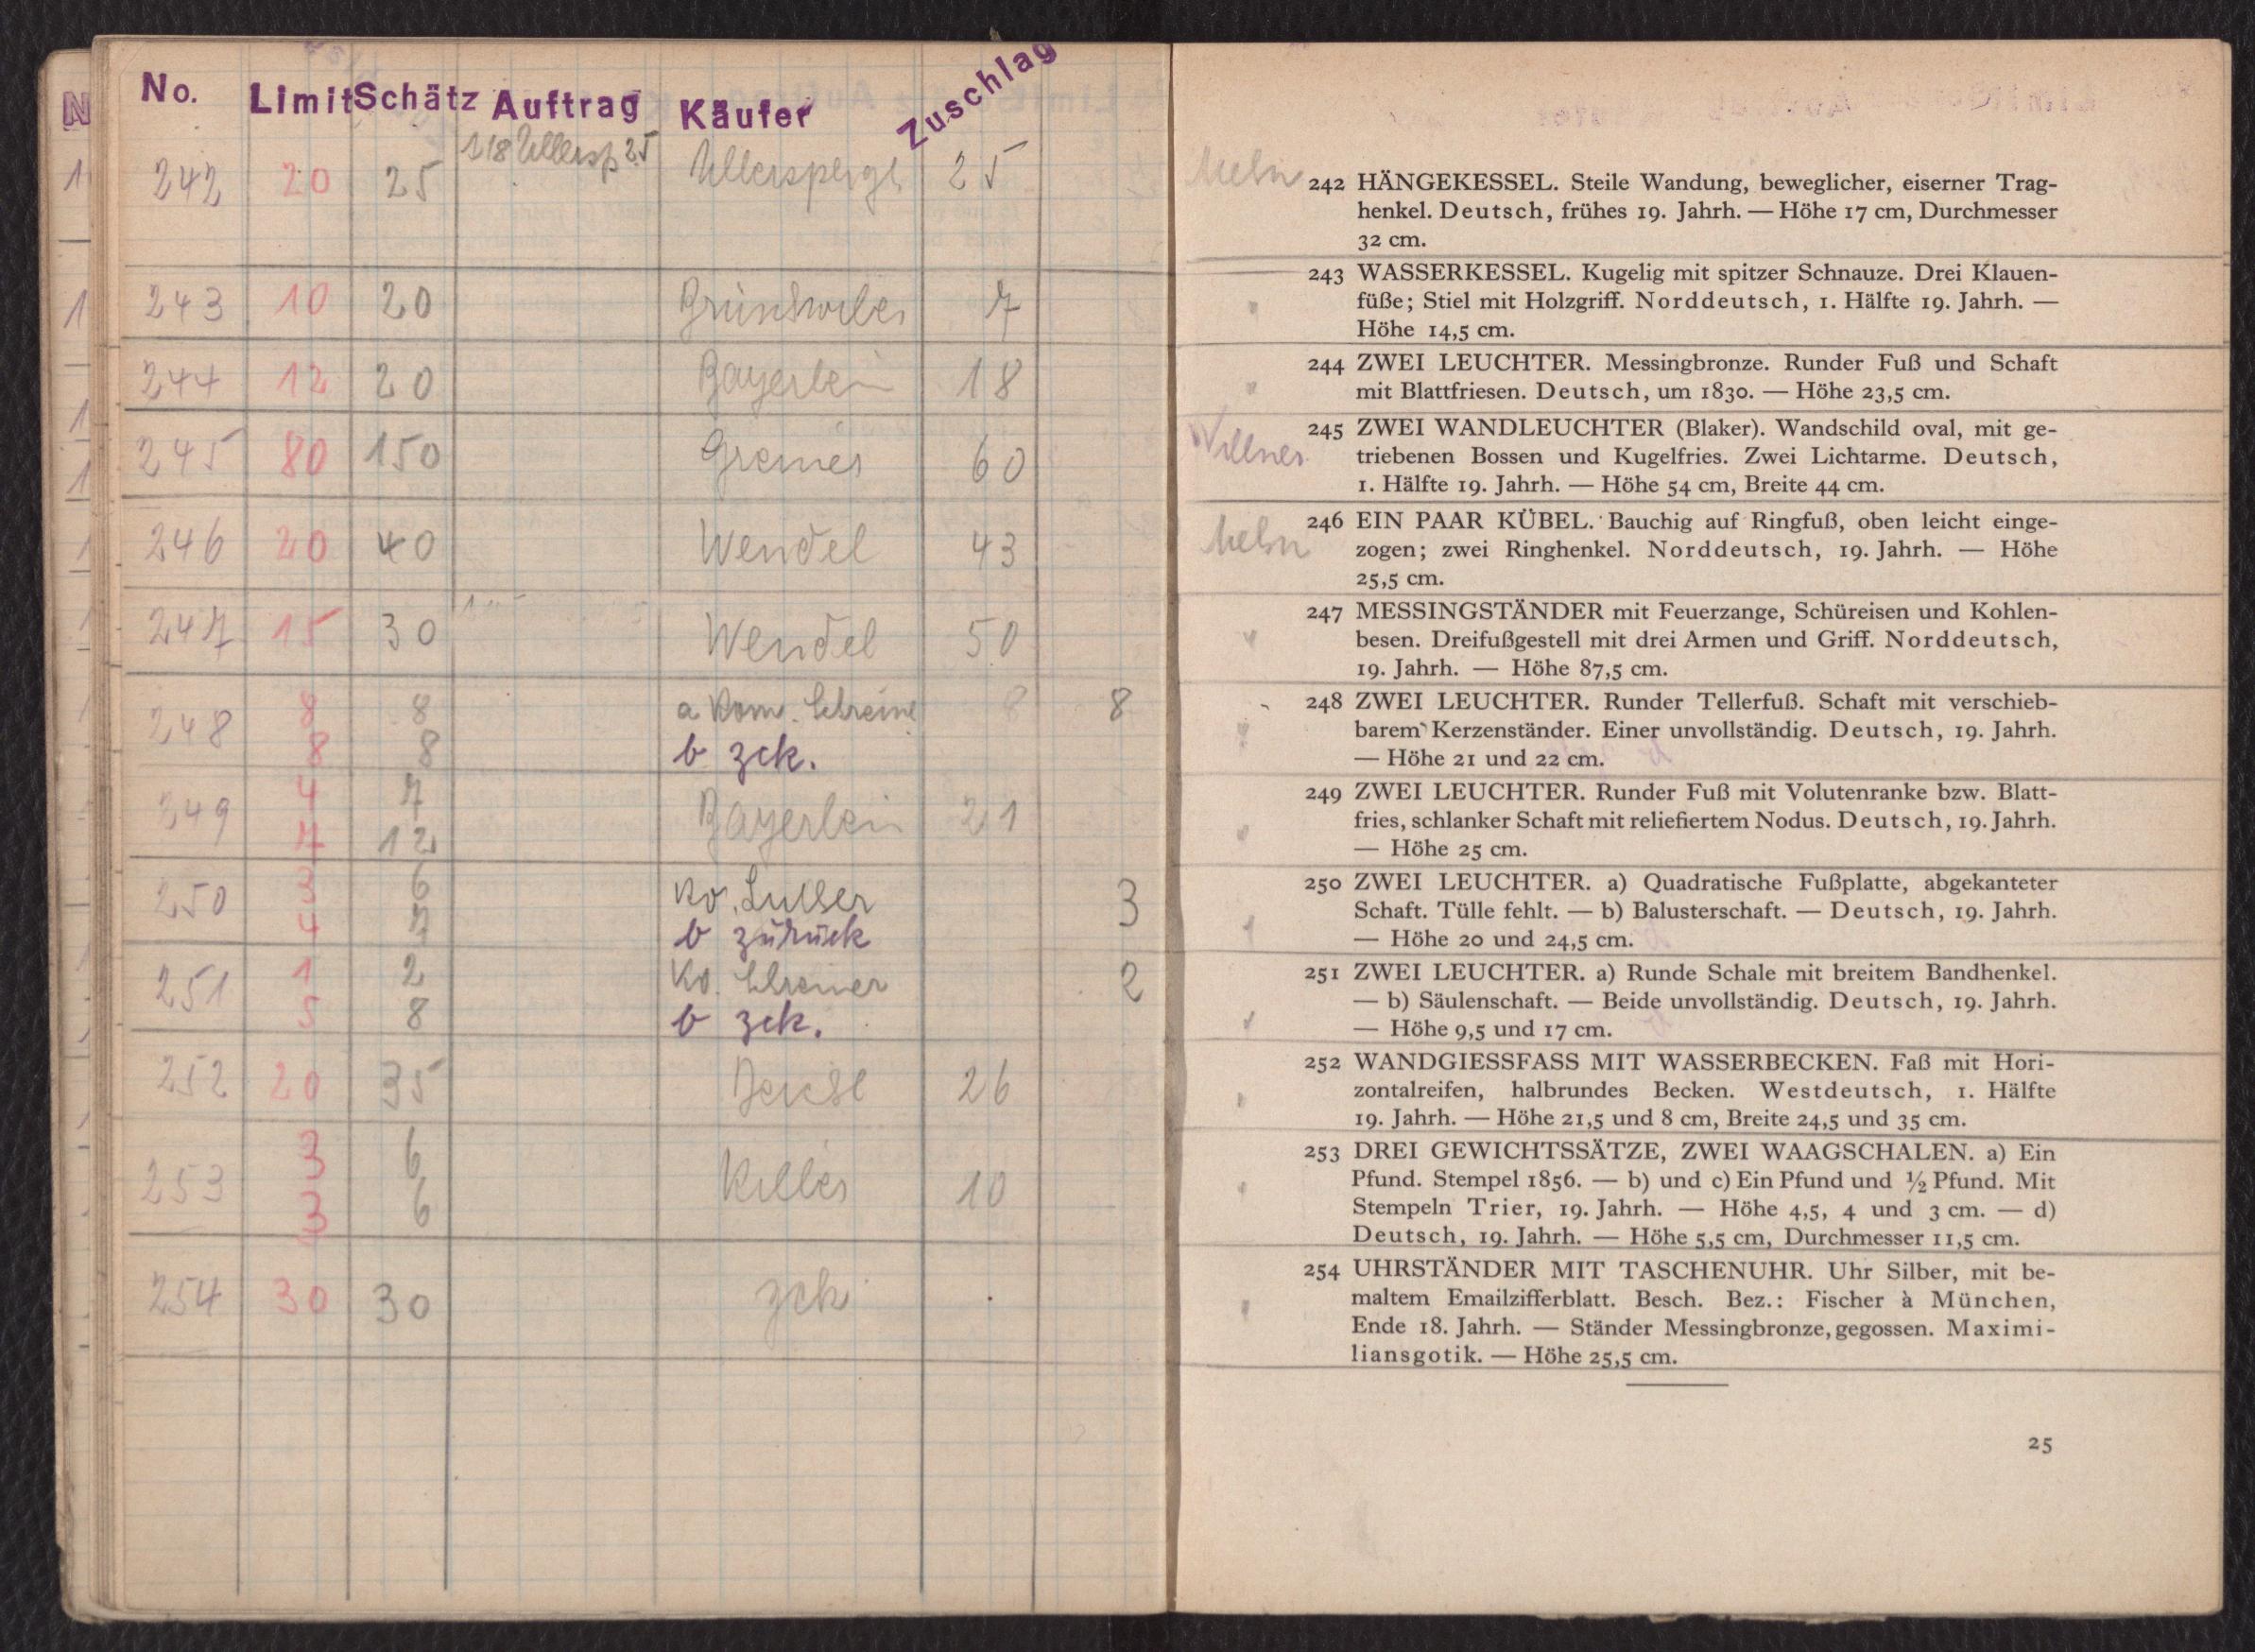 No. Limit Schätz Auftrag Käufer Zuschlag
242 20 25 25 25
243 10 20 7
244 12 20 Bayerlein 18
245 80 150 60
246 20 40 Wendel 43
247 15 30 Wendel 50
248 8 8 a Kom. 8 8
8 8 b zck.
249 4 7 Bayerlein 21
7 12
250 3 6 Ko. 3
4 7 b zurück
251 1 2 Ko. 2
5 8 b zck.
252 20 35 26
253 3 6 10
3 6
254 30 30 zck
242 HÄNGEKESSEL. Steile Wandung, beweglicher, eiserner Trag-
henkel. Deutsch, frühes 19. Jahrh. — Höhe 17 cm, Durchmesser
32 cm.
243 WASSERKESSEL. Kugelig mit spitzer Schnauze. Drei Klauen-
füße; Stiel mit Holzgriff. Norddeutsch, 1. Hälfte 19. Jahrh. —
Höhe 14,5 cm.
244 ZWEI LEUCHTER. Messingbronze. Runder Fuß und Schaft
mit Blattfriesen. Deutsch, um 1830. — Höhe 23,5 cm.
245 ZWEI WANDLEUCHTER (Blaker). Wandschild oval, mit ge-
triebenen Bossen und Kugelfries. Zwei Lichtarme. Deutsch,
1. Hälfte 19. Jahrh. — Höhe 54 cm, Breite 44 cm.
246 EIN PAAR KÜBEL. Bauchig auf Ringfuß, oben leicht einge-
zogen; zwei Ringhenkel. Norddeutsch, 19. Jahrh. — Höhe
25,5 cm.
247 MESSINGSTÄNDER mit Feuerzange, Schüreisen und Kohlen-
besen. Dreifußgestell mit drei Armen und Griff. Norddeutsch,
19. Jahrh. — Höhe 87,5 cm.
248 ZWEI LEUCHTER. Runder Tellerfuß. Schaft mit verschieb-
barem Kerzenständer. Einer unvollständig. Deutsch, 19. Jahrh.
— Höhe 21 und 22 cm.
249 ZWEI LEUCHTER. Runder Fuß mit Volutenranke bzw. Blatt-
fries, schlanker Schaft mit reliefiertem Nodus. Deutsch, 19. Jahrh.
— Höhe 25 cm.
250 ZWEI LEUCHTER. a) Quadratische Fußplatte, abgekanteter
Schaft. Tülle fehlt. — b) Balusterschaft. — Deutsch, 19. Jahrh.
— Höhe 20 und 24,5 cm.
251 ZWEI LEUCHTER. a) Runde Schale mit breitem Bandhenkel.
— b) Säulenschaft. — Beide unvollständig. Deutsch, 19. Jahrh.
— Höhe 9,5 und 17 cm.
252 WANDGIESSFASS MIT WASSERBECKEN. Faß mit Hori-
zontalreifen, halbrundes Becken. Westdeutsch, 1. Hälfte
19. Jahrh. — Höhe 21,5 und 8 cm, Breite 24,5 und 35 cm.
253 DREI GEWICHTSSÄTZE, ZWEI WAAGSCHALEN. a) Ein
Pfund. Stempel 1856. — b) und c) Ein Pfund und ½ Pfund. Mit
Stempeln Trier, 19. Jahrh. — Höhe 4,5, 4 und 3 cm. — d)
Deutsch, 19. Jahrh. — Höhe 5,5 cm, Durchmesser 11,5 cm.
254 UHRSTÄNDER MIT TASCHENUHR. Uhr Silber, mit be-
maltem Emailzifferblatt. Besch. Bez.: Fischer à München,
Ende 18. Jahrh. — Ständer Messingbronze, gegossen. Maximi-
liansgotik. — Höhe 25,5 cm.
25